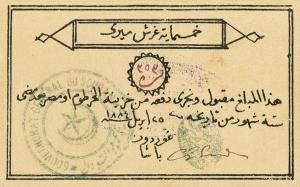 خمسماية غرش ميرى
هذا المبلغ مقبول ويجرى دفعه من خزينة الخرطوم او مصر بعد مضى
ستة شهور من تاريخه ٢٥ ابريل ١٨٨٤
غوردون
باشا
GOUVERNORAT GENERAL DU SOUDAN